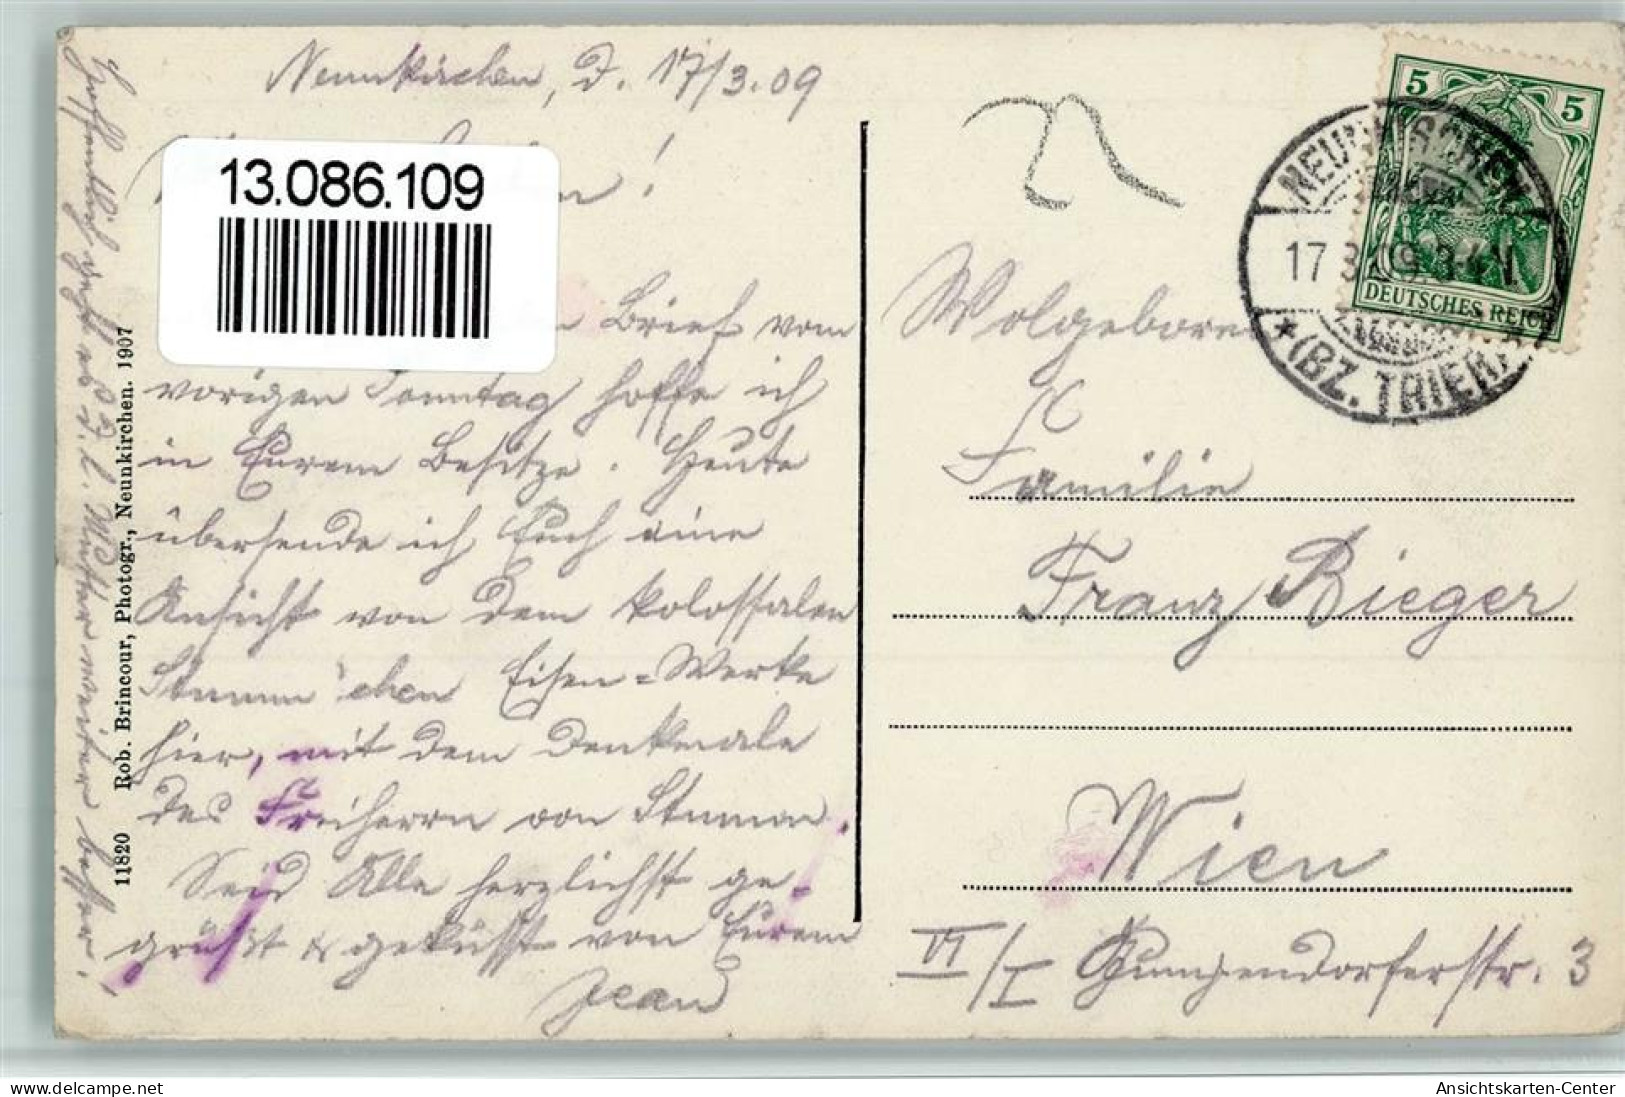 Neunkirchen, d. 17/3.09
13.086.109
Brief vom
vorigen Sonntag hoffe ich
in Eurem Besitze. Heute
übersende ich Euch eine
Ansicht von dem kolossalen
Stumm'chen Eisen=Werke
hier, mit dem Denkmale
des Freiherrn von Stumm.
Seid Alle herzlichst ge-
grüßt & geküsst von Eurem
Jean
Hoffentlich geht es d. l. Mutter weiter besser.
11820 Rob. Brincour, Photogr., Neunkirchen. 1907
5 5
DEUTSCHES REICH
NEUNKIRCHEN
17 3 09 3-4 N.
*(BZ. TRIER)
Wolgeboren
Familie
Franz Rieger
Wien
VI/I Gumpendorferstr. 3
delcampe.net
Ansichtskarten-Center